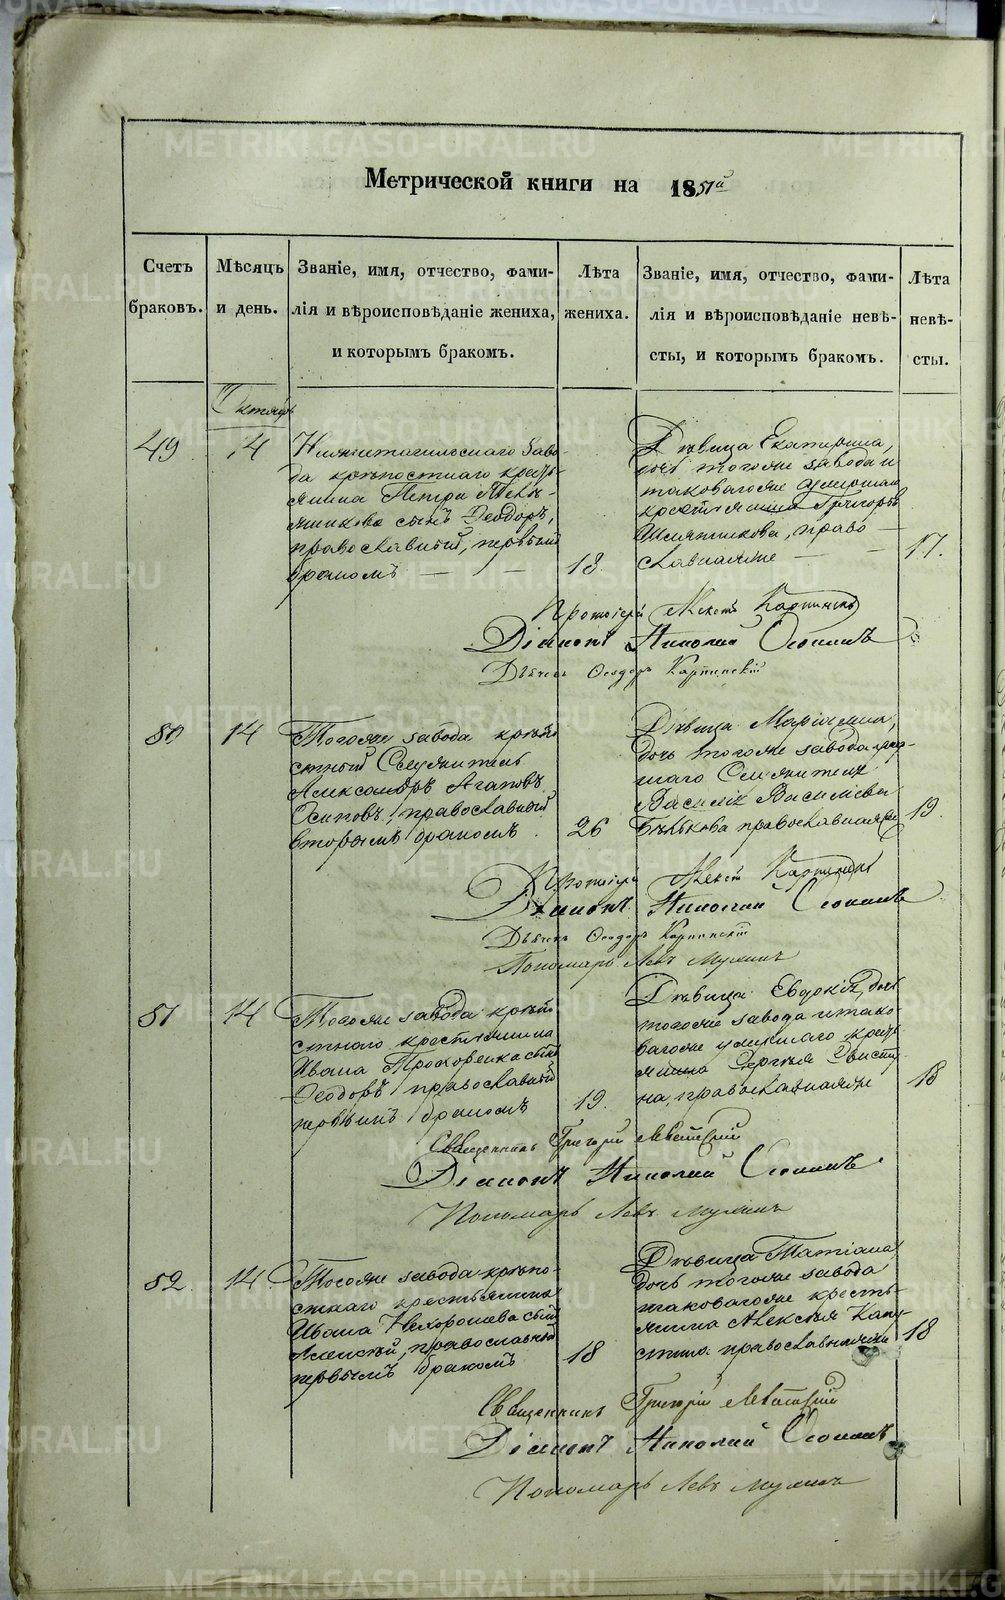 Метрической книги на 1851й
Счетъ браковъ.
Мѣсяцъ и день.
Званіе, имя, отчество, фами-
лія и вѣроисповѣданіе жениха,
и которымъ бракомъ.
Лѣта жениха.
Званіе, имя, отчество, фами-
лія и вѣроисповѣданіе невѣ-
сты, и которымъ бракомъ.
Лѣта невѣ-
сты.
Октябрь
49
14
Нижнетагильскаго заво-
да крѣпостнаго кресть-
янина Петра
сынъ Ѳеодоръ,
православный, первымъ
бракомъ
18.
Дѣвица Екатерина,
дочь тогоже завода и
таковагоже умершаго
крестьянина Григорья
право-
славнаяже
17.
Протоіерей Алексѣй Карпинскій
Діаконъ Николай Осокинъ
Дьячекъ Ѳеодоръ Карпинскій
50
14
Тогоже завода крѣпо-
стный Служитель
Александръ Агаповъ
Осиповъ, православный
вторымъ бракомъ
26
Дѣвица Маріамна,
дочь тогоже завода
Служителя
Василія Васильева
Бѣлькова православнаяже
19.
Протоіерей Алексѣй Карпинскій
Діаконъ Николай Осокинъ
Дьячекъ Ѳеодоръ Карпинскій
Пономарь Левъ Мухинъ
51
14
Тогоже завода крѣпо-
стнаго крестьянина
Ивана сынъ
Ѳеодоръ православный
первымъ бракомъ
19.
Дѣвица Евдокія, дочь
тогоже завода итако-
вагоже умершаго кресть-
янина Сергѣя
на, православнаяже
18
Священникъ Григорій
Діаконъ Николай Осокинъ
Пономарь Левъ Мухинъ
52.
14.
Тогоже завода крѣпо-
стнаго крестьянина
Ивана Нехорошева сынъ
Алексѣй, православный
первымъ бракомъ
18
Дѣвица Татіана
дочь тогоже завода
таковагоже кресть-
янина Алексѣя Капу-
стина православнаяже
18
Священникъ Григорій
Діаконъ Николай Осокинъ
Пономарь Левъ Мухинъ
METRIKI.GASO-URAL.RU